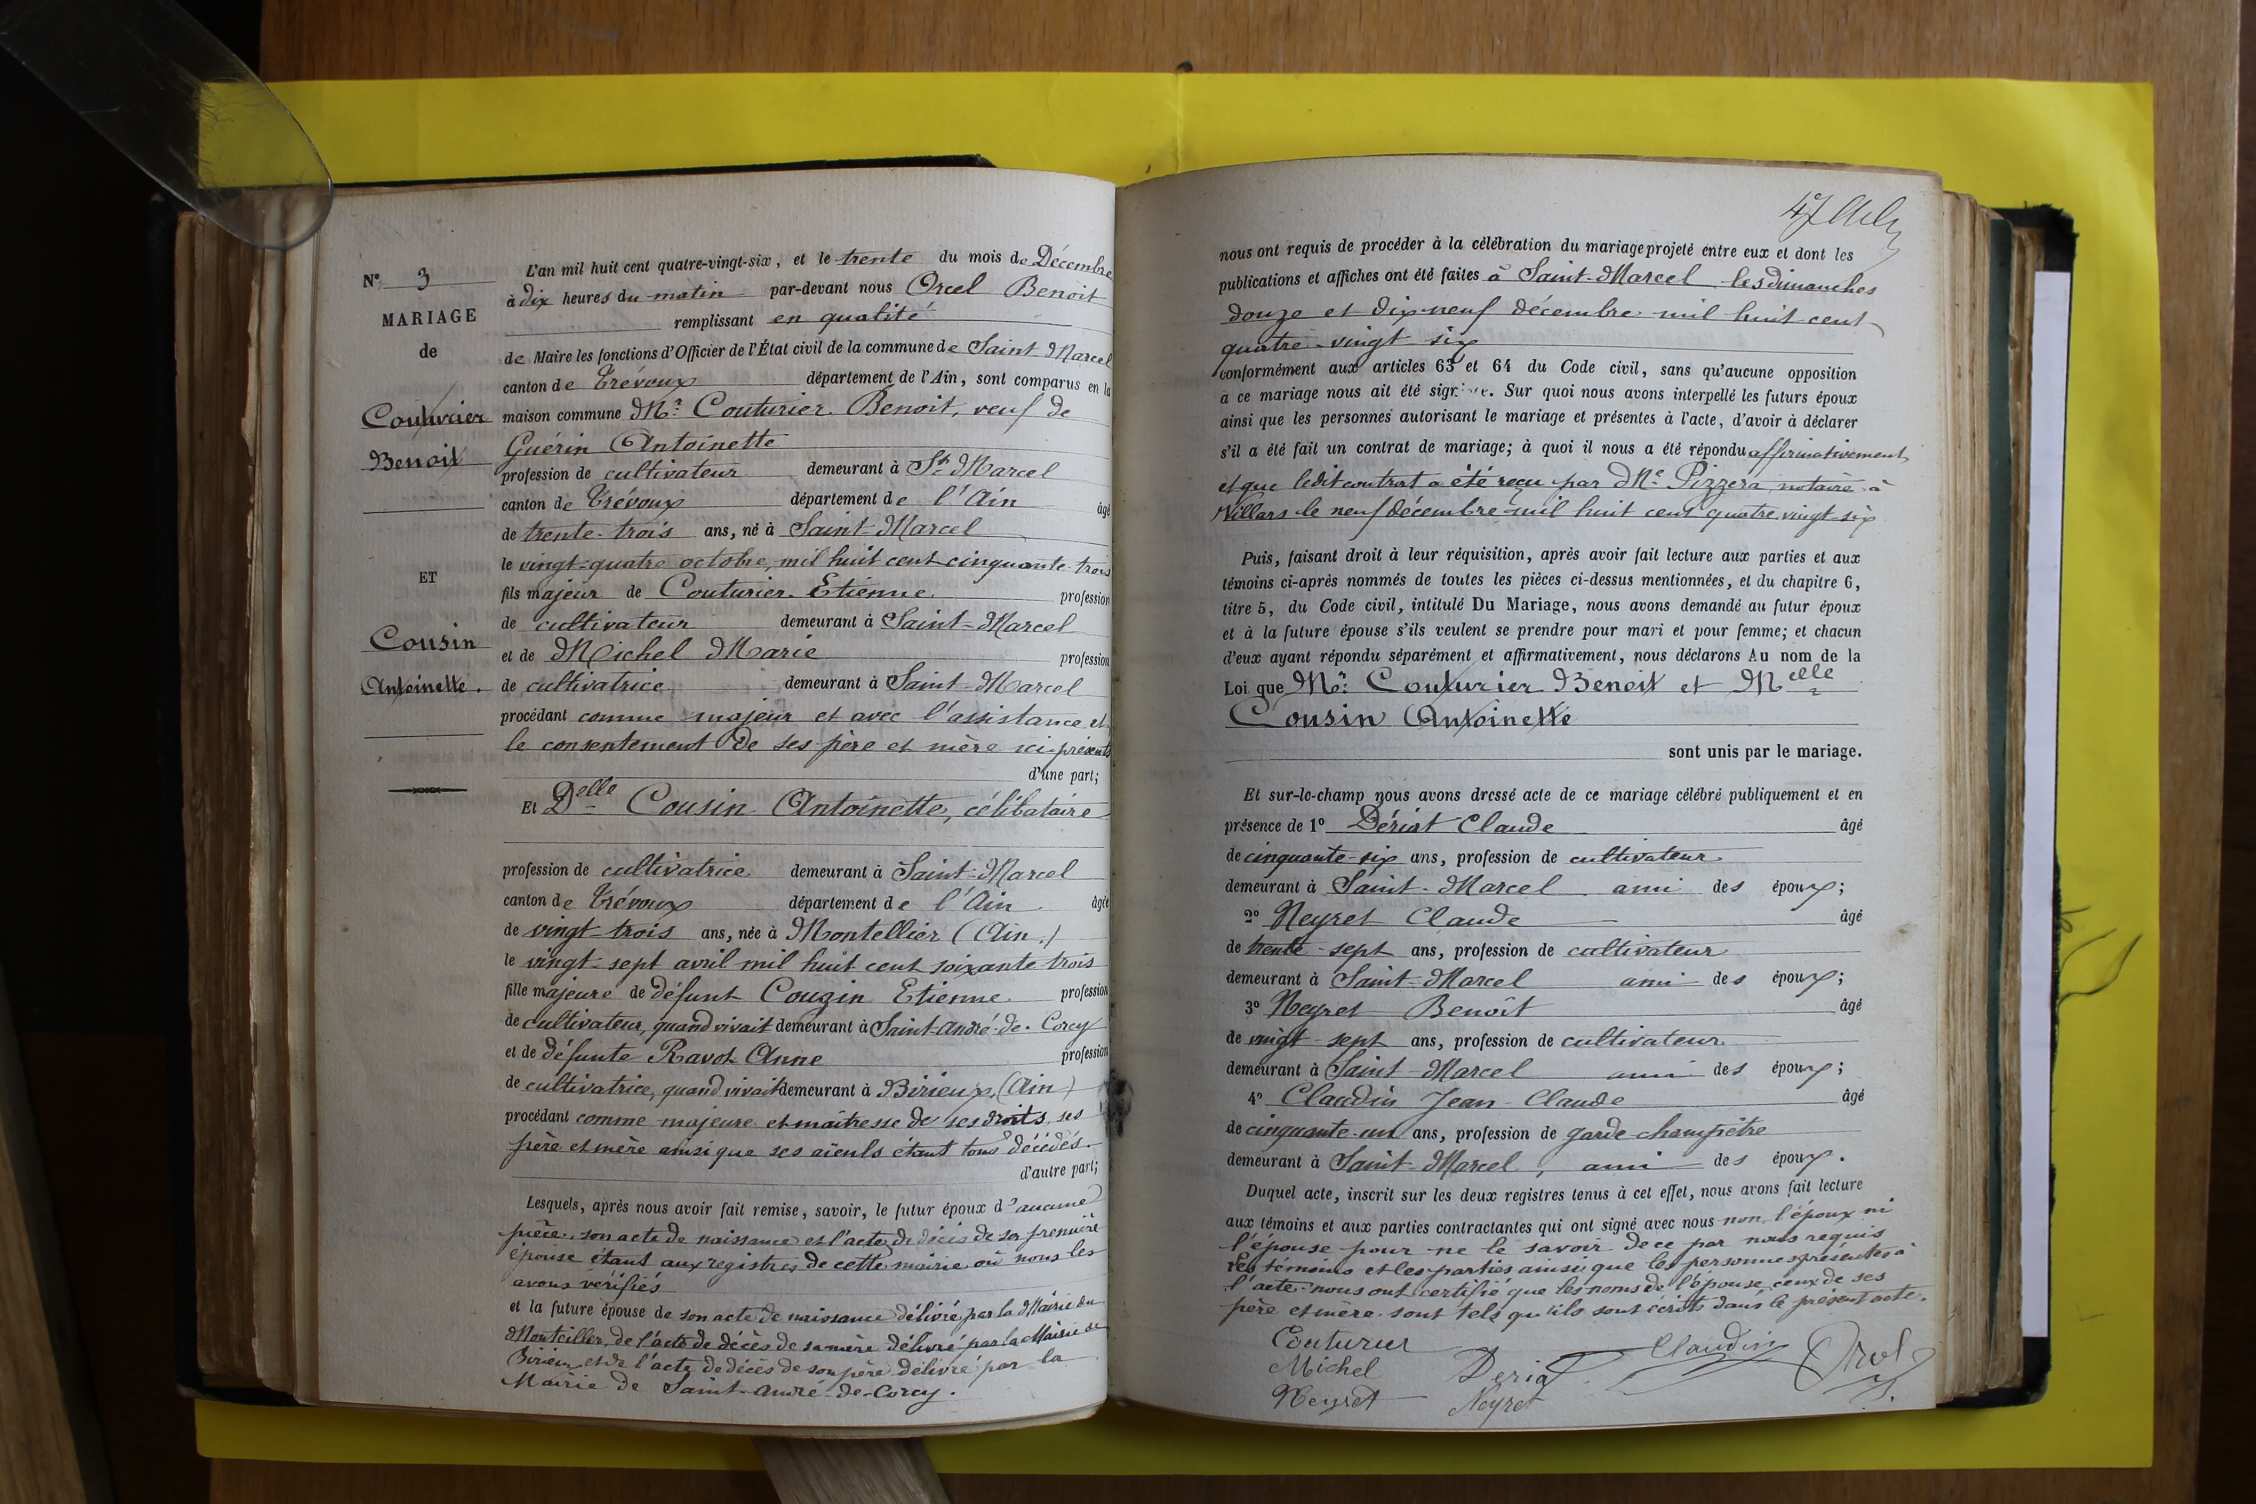 N° 3
MARIAGE
de
Couturier
Benoit
ET
Cousin
Antoinette.
L'an mil huit cent quatre-vingt-six, et le trente du mois de Décembre
à dix heures du matin par-devant nous Orcel Benoit
remplissant en qualité
de Maire les fonctions d'Officier de l'État civil de la commune de Saint Marcel
canton de Trévoux département de l'Ain, sont comparus en la
maison commune Mr. Couturier Benoit, veuf de
Guérin Antoinette
profession de cultivateur demeurant à St Marcel
canton de Trévoux département de l'Ain âgé
de trente-trois ans, né à Saint-Marcel
le vingt-quatre octobre, mil huit cent cinquante-trois
fils majeur de Couturier Etienne profession
de cultivateur demeurant à Saint-Marcel
et de Michel Marie profession
de cultivatrice demeurant à Saint-Marcel
procédant comme majeur et avec l'assistance et
le consentement de ses père et mère ici présents
d'une part;
Et Delle Cousin Antoinette, célibataire
profession de cultivatrice demeurant à Saint-Marcel
canton de Trévoux département de l'Ain âgée
de vingt-trois ans, née à Montellier (Ain.)
le vingt-sept avril mil huit cent soixante trois
fille majeure de défunt Cougin Etienne profession
de cultivateur, quand vivait demeurant à Saint-André-de-Corcy
et de défunte Ravot Anne profession
de cultivatrice, quand vivait demeurant à Birieux, (Ain)
procédant comme majeure et maîtresse de ses droits, ses
père et mère ainsi que ses aïeuls étant tous décédés.
d'autre part;
Lesquels, après nous avoir fait remise, savoir, le futur époux d'aucune
pièce, son acte de naissance et l'acte de décès de sa première
épouse étant aux registres de cette mairie où nous les
avons vérifiés
et la future épouse de son acte de naissance délivré par la Mairie du
Monteiller, de l'acte de décès de sa mère délivré par la Mairie de
Birieux et de l'acte de décès de son père délivré par la
Mairie de Saint-André-de-Corcy.
47
nous ont requis de procéder à la célébration du mariage projeté entre eux et dont les
publications et affiches ont été faites à Saint-Marcel les dimanches
douze et dix-neuf décembre mil huit cent
quatre-vingt six
conformément aux articles 63 et 64 du Code civil, sans qu'aucune opposition
à ce mariage nous ait été signifiée. Sur quoi nous avons interpellé les futurs époux
ainsi que les personnes autorisant le mariage et présentes à l'acte, d'avoir à déclarer
s'il a été fait un contrat de mariage; à quoi il nous a été répondu affirmativement
et que ledit contrat a été reçu par Me Pizzera notaire à
Villars le neuf décembre mil huit cent quatre vingt-six
Puis, faisant droit à leur réquisition, après avoir fait lecture aux parties et aux
témoins ci-après nommés de toutes les pièces ci-dessus mentionnées, et du chapitre 6,
titre 5, du Code civil, intitulé Du Mariage, nous avons demandé au futur époux
et à la future épouse s'ils veulent se prendre pour mari et pour femme; et chacun
d'eux ayant répondu séparément et affirmativement, nous déclarons Au nom de la
Loi que Mr. Couturier Benoit et Melle
Cousin Antoinette
sont unis par le mariage.
Et sur-le-champ nous avons dressé acte de ce mariage célébré publiquement et en
présence de 1° Dériat Claude âgé
de cinquante-six ans, profession de cultivateur
demeurant à Saint-Marcel ami des époux;
2° Neyret Claude âgé
de trente-sept ans, profession de cultivateur
demeurant à Saint-Marcel ami des époux;
3° Neyret Benoît âgé
de vingt-sept ans, profession de cultivateur
demeurant à Saint-Marcel ami des époux;
4° Claudin Jean-Claude âgé
de cinquante-un ans, profession de garde-champêtre
demeurant à Saint-Marcel, ami des époux.
Duquel acte, inscrit sur les deux registres tenus à cet effet, nous avons fait lecture
aux témoins et aux parties contractantes qui ont signé avec nous non l'époux ni
l'épouse pour ne le savoir de ce par nous requis
les témoins et les parties ainsi que les personnes présentes à
l'acte nous ont certifié que les noms de l'épouse, ceux de ses
père et mère sont tels qu'ils sont écrits dans le présent acte.
Couturier
Michel Deriat Claudin
Neyret Neyret